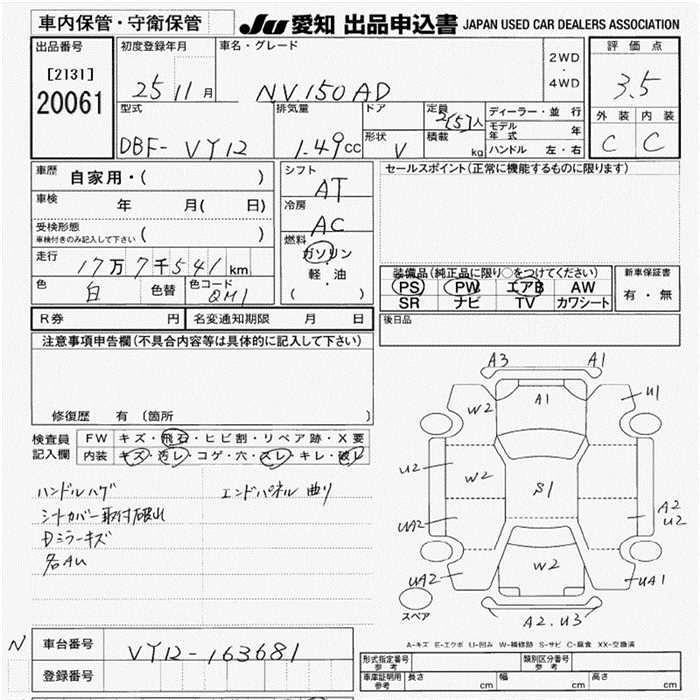 車内保管・守衛保管
JU 愛知 出品申込書 JAPAN USED CAR DEALERS ASSOCIATION
出品番号
[2131]
20061
初度登録年月
25 11月
車名・グレード
NV150 AD
2WD
・
4WD
評価点
3.5
外装 内装
C C
型式
DBF- VY12
排気量
1.49cc
ドア
形状
V
定員
2(5)人
積載
kg
ディーラー・並行
モデル年式 年
ハンドル 左・右
車歴 自家用・( )
車検 年 月( 日)
受検形態
車検付きのみ記入して下さい
走行 17万7千541km
色 白 色替 色コード QM1
シフト
AT
冷房
AC
燃料
ガソリン
軽・油
( )
セールスポイント(正常に機能するものに限ります)
装備品(純正品に限り○をつけてください)
PS PW エアB AW
SR ナビ TV カワシート
新車保証書
有・無
後日品
R券 円 名変通知期限 月 日
注意事項申告欄(不具合内容等は具体的に記入して下さい)
修復歴 有 (箇所 )
検査員記入欄
FW キズ・飛石・ヒビ割・リペア跡・X要
内装 キズ・汚レ・コゲ・穴・スレ・キレ・破レ
ハンドルハゲ エンドパネル曲り
シートカバー取付破れ
Dミラーキズ
各AU
A3 A1
W2 A1 U1
U2 W2 S1 A2
U2
UA2
UA2 W2 UA1
スペア
A2.U3
A-キズ E-エクボ U-凹み W-補修跡 S-サビ C-腐食 XX-交換済
N 車台番号 VY12-163681
登録番号
形式指定番号
参考
類別区分番号
参考
車庫証明用
参考
長さ cm 幅 cm 高さ cm